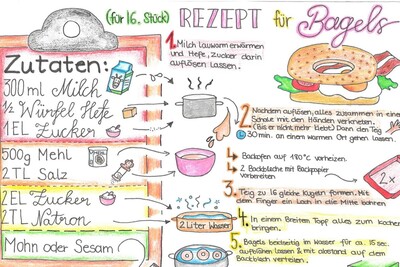 (für 16. Stück) REZEPT für Bagels
Zutaten:
300ml Milch
½ Würfel Hefe
1EL Zucker
500g Mehl
2TL Salz
2EL Zucker
2TL Natron
Mohn oder Sesam
2 Liter Wasser
1. Milch lauwarm erwärmen
und Hefe, Zucker darin
auflösen lassen.
2. Nachdem auflösen, alles zusammen in eine
Schale mit den Händen verkneten.
(Bis er nicht mehr klebt) Dann den Teig
30 min. an einem warmen Ort gehen lassen.
Backofen auf 180°C vorheizen.
2 Backbleche mit Backpapier
vorbereiten.
2x
3. Teig zu 16 gleiche Kugeln formen. Mit
dem Finger ein Loch in die Mitte bohren
4. In einem Breiten Topf alles zum kochen
bringen.
5. Bagels beidseitig im Wasser für ca. 15 sec.
auflösen lassen & mit abstand auf dem
Backblech verteilen.